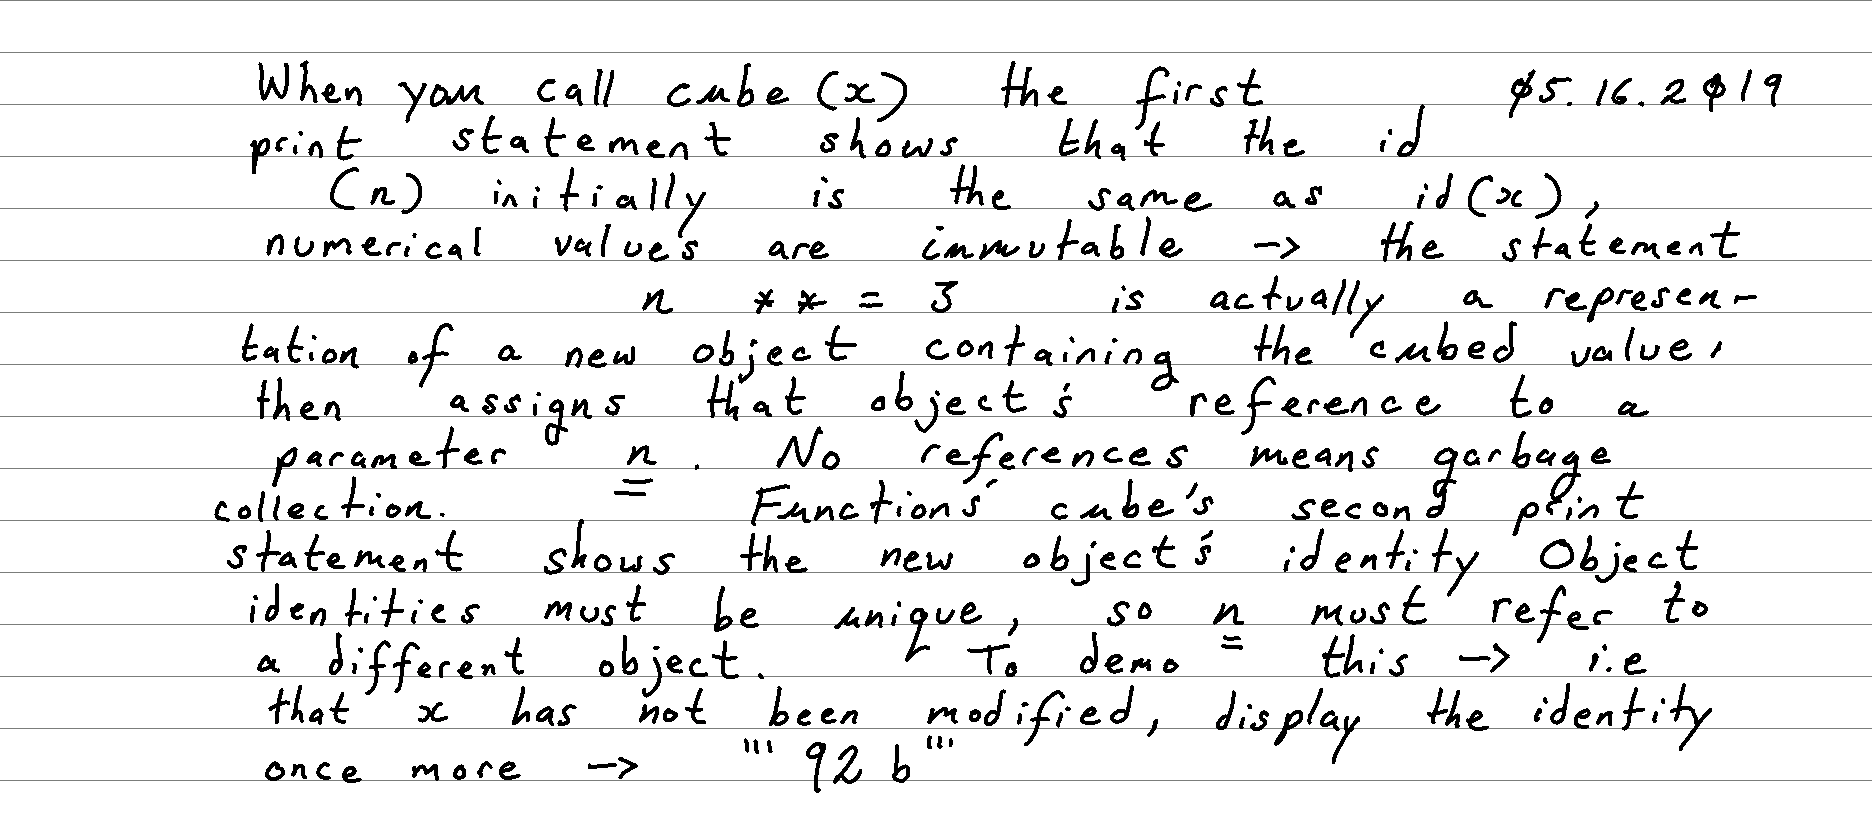 When you call cube (x) the first 05.16.2019
print statement shows that the id
(n) initially is the same as id(x),
numerical values are immutable -> the statement
n ** = 3 is actually a represen-
tation of a new object containing the cubed value,
then assigns that object's reference to a
parameter n. No references means garbage
collection. Functions' cube's second print
statement shows the new object's identity Object
identities must be unique, so n must refer to
a different object. To demo this -> i.e
that x has not been modified, display the identity
once more -> ''' 92 b '''